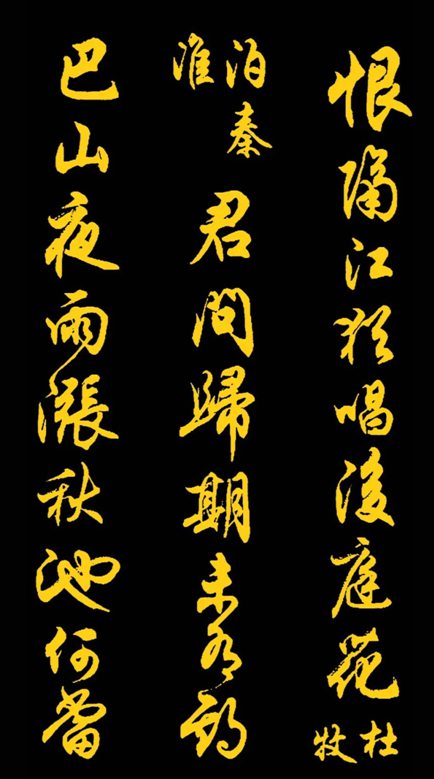 恨隔江犹唱後庭花
杜牧
泊秦淮
君問歸期未有期
巴山夜雨漲秋池何當